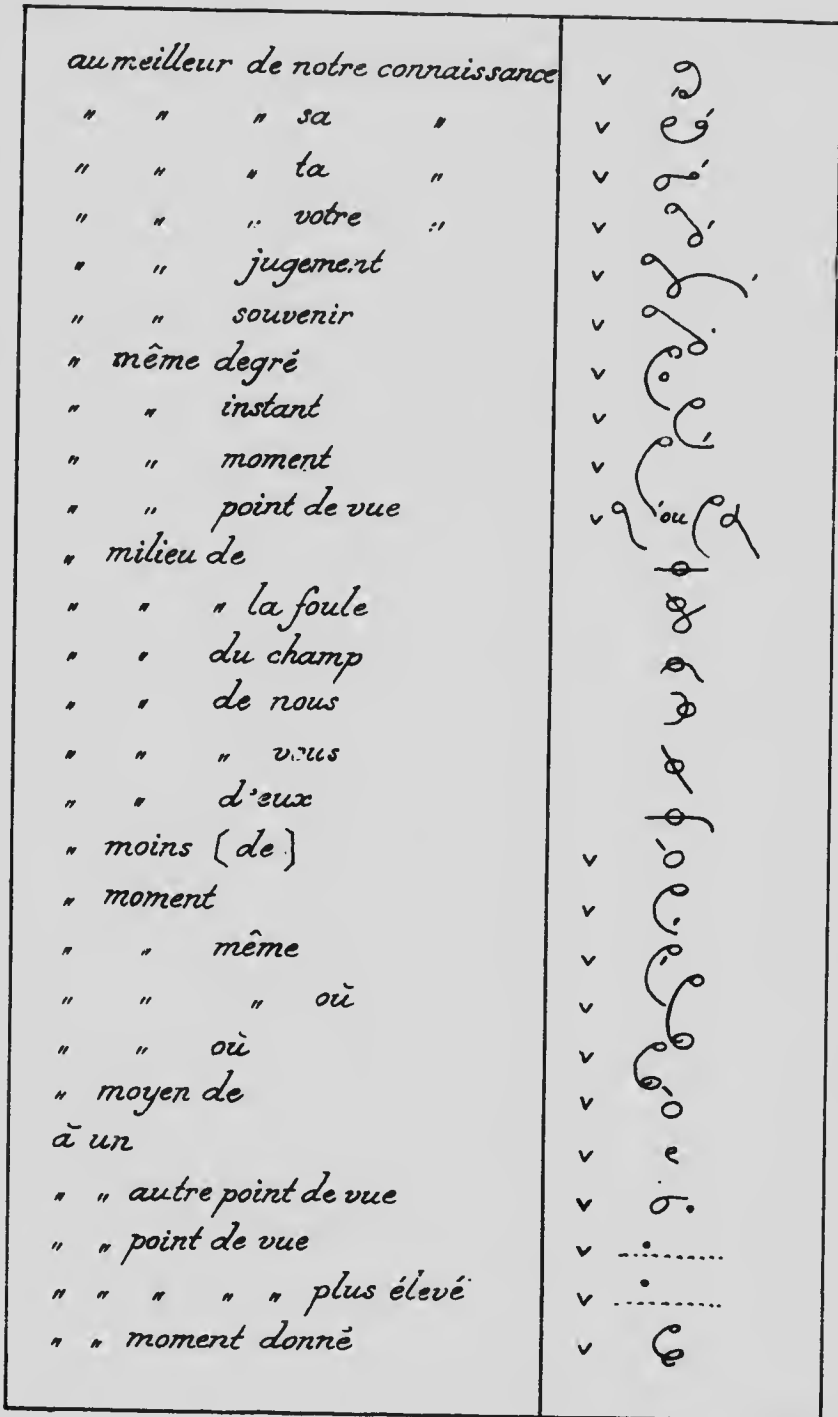 au meilleur de notre connaissance v
" " " sa " v
" " " ta " v
" " " votre " v
" " jugement v
" " souvenir v
" même degré v
" " instant v
" " moment v
" " point de vue v ou
" milieu de
" " " la foule
" " du champ
" " de nous
" " " vous
" " d'eux
" moins (de) v
" moment v
" " même v
" " " où v
" " où v
" moyen de v
à un v
" " autre point de vue v
" " point de vue v
" " " " " plus élevé v
" " moment donné v